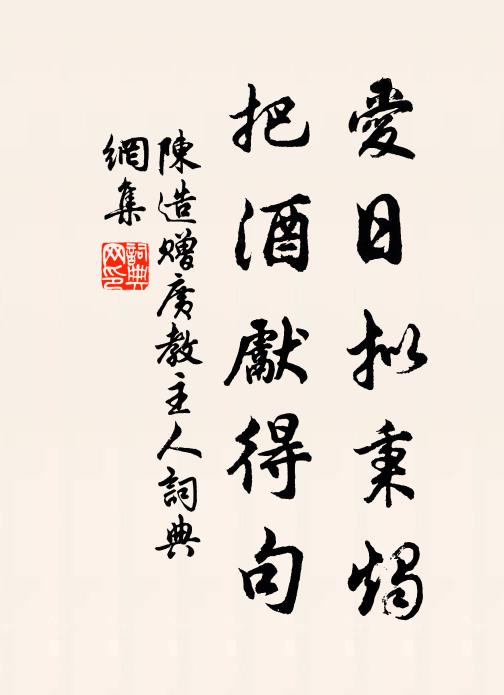 愛日擬秉燭
把酒獻得句
陳造贈廣教主人詞典
網集
詞典网印